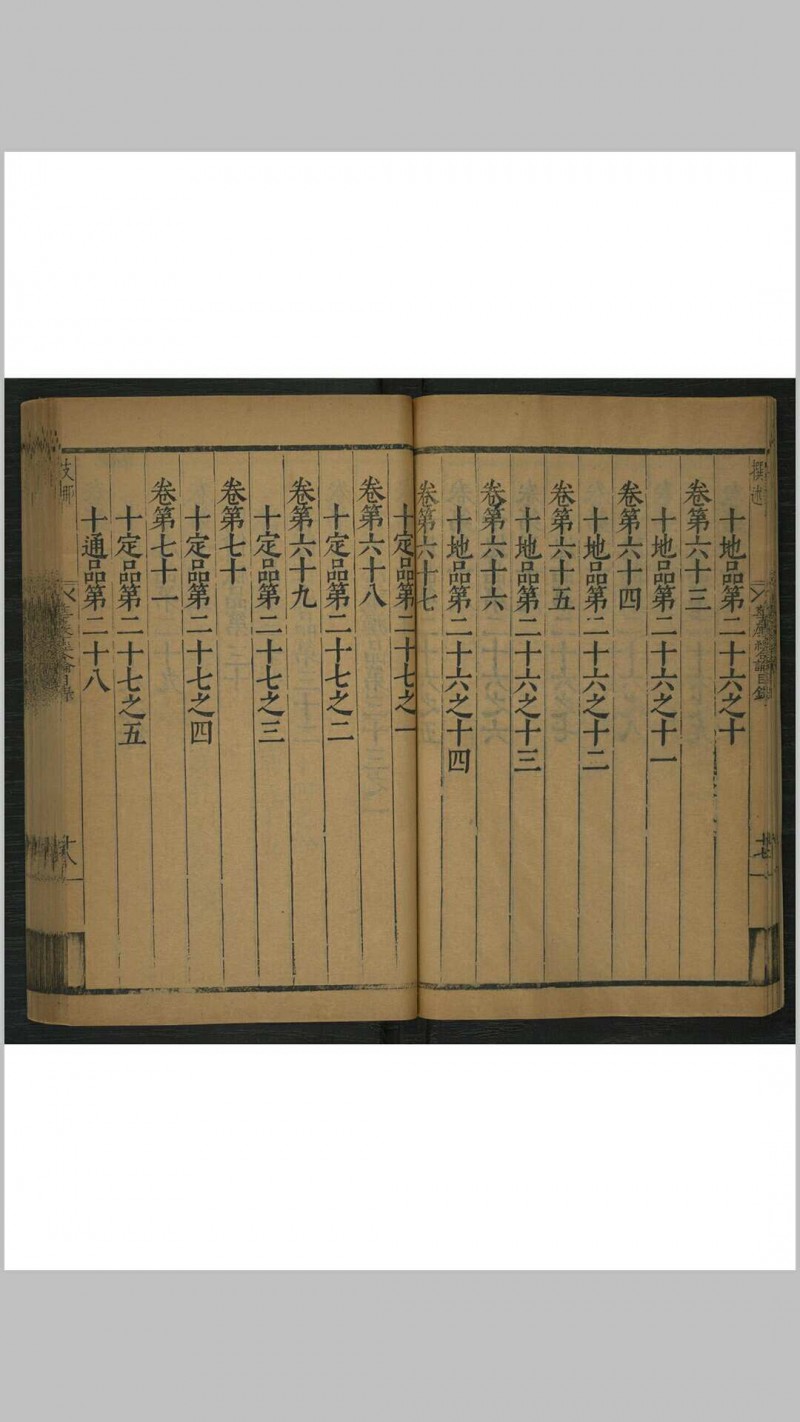 撰述
十地品第二十六之十
卷第六十三
十地品第二十六之十一
卷第六十四
十地品第二十六之十二
卷第六十五
十地品第二十六之十三
卷第六十六
十地品第二十六之十四
卷第六十七
十定品第二十七之一
卷第六十八
十定品第二十七之二
卷第六十九
十定品第二十七之三
卷第七十
十定品第二十七之四
卷第七十一
十定品第二十七之五
十通品第二十八